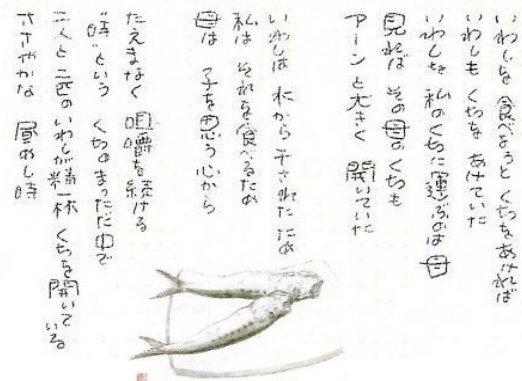 いわしを食べようと くちをあければ
いわしも くちを あけていた
いわしを 私のくちに運ぶのは 母
見れば その母のくちも
アーンと大きく 開いていた
いわしは 水から干されたため
私は それを食べるため
母は 子を思う心から
たえまなく 咀嚼を続ける
"時"という くちのまっただ中で
二人と二匹のいわしが精一杯 くちを開いている
ささやかな 昼めし時